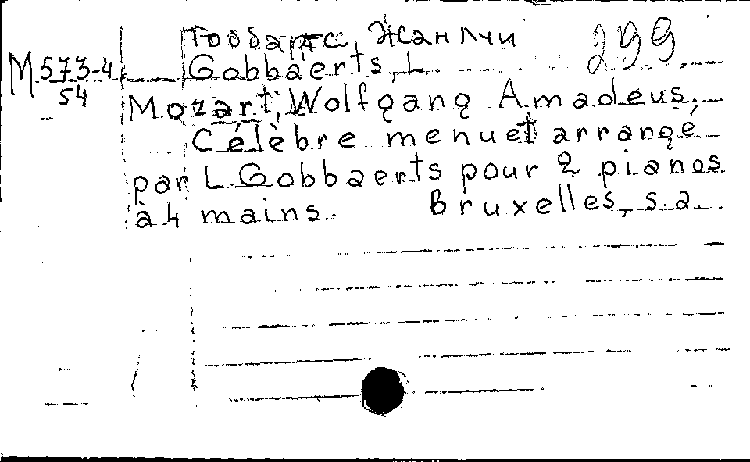 Гоббартс, Жан Луи 299.
М 573-4
54
Gobbaerts, L.
Mozart, Wolfgang Amadeus.
Célèbre menuet arrangé
par L. Gobbaerts pour 2 pianos
à 4 mains. Bruxelles, s.a.